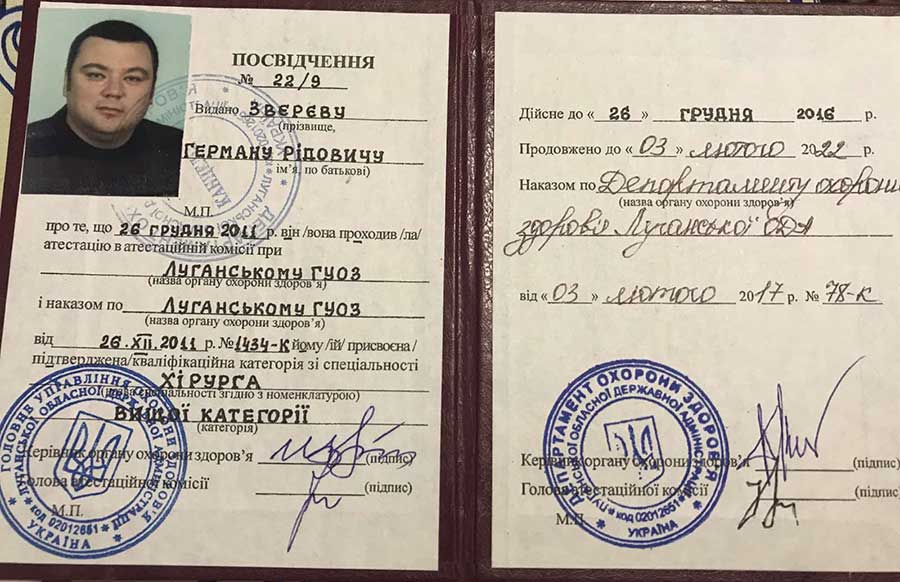 ПОСВІДЧЕННЯ
№ 22/9
Видано ЗВЕРЕВУ
(прізвище,
ГЕРМАНУ РІДОВИЧУ
ім'я, по батькові)
М.П.
про те, що 26 ГРУДНЯ 2011 р. він /вона проходив /ла/
атестацію в атестаційній комісії при
ЛУГАНСЬКОМУ ГУОЗ
(назва органу охорони здоров'я)
і наказом по ЛУГАНСЬКОМУ ГУОЗ
(назва органу охорони здоров'я)
від 26.XII.2011 р. № 1434-К йому /їй/ присвоєна /
підтверджена/ кваліфікаційна категорія зі спеціальності
ХІРУРГА
(назва спеціальності згідно з номенклатурою)
ВИЩОЇ КАТЕГОРІЇ
(категорія)
Керівник органу охорони здоров'я (підпис)
Голова атестаційної комісії (підпис)
М.П.
ГОЛОВНЕ УПРАВЛІННЯ ОХОРОНИ ЗДОРОВ'Я
ЛУГАНСЬКОЇ ОБЛАСНОЇ ДЕРЖАВНОЇ АДМІНІСТРАЦІЇ
код 02012651
УКРАЇНА
Дійсне до « 26 » ГРУДНЯ 2016 р.
Продовжено до «03» лютого 2022 р.
Наказом по Департаменту охорони
(назва органу охорони здоров'я)
здоров'я Луганської ОДА
від «03» лютого 2017 р. № 78-к
Керівник органу охорони здоров'я (підпис)
Голова атестаційної комісії (підпис)
М.П.
ДЕПАРТАМЕНТ ОХОРОНИ ЗДОРОВ'Я
ЛУГАНСЬКОЇ ОБЛАСНОЇ ДЕРЖАВНОЇ АДМІНІСТРАЦІЇ
код 02012651
УКРАЇНА